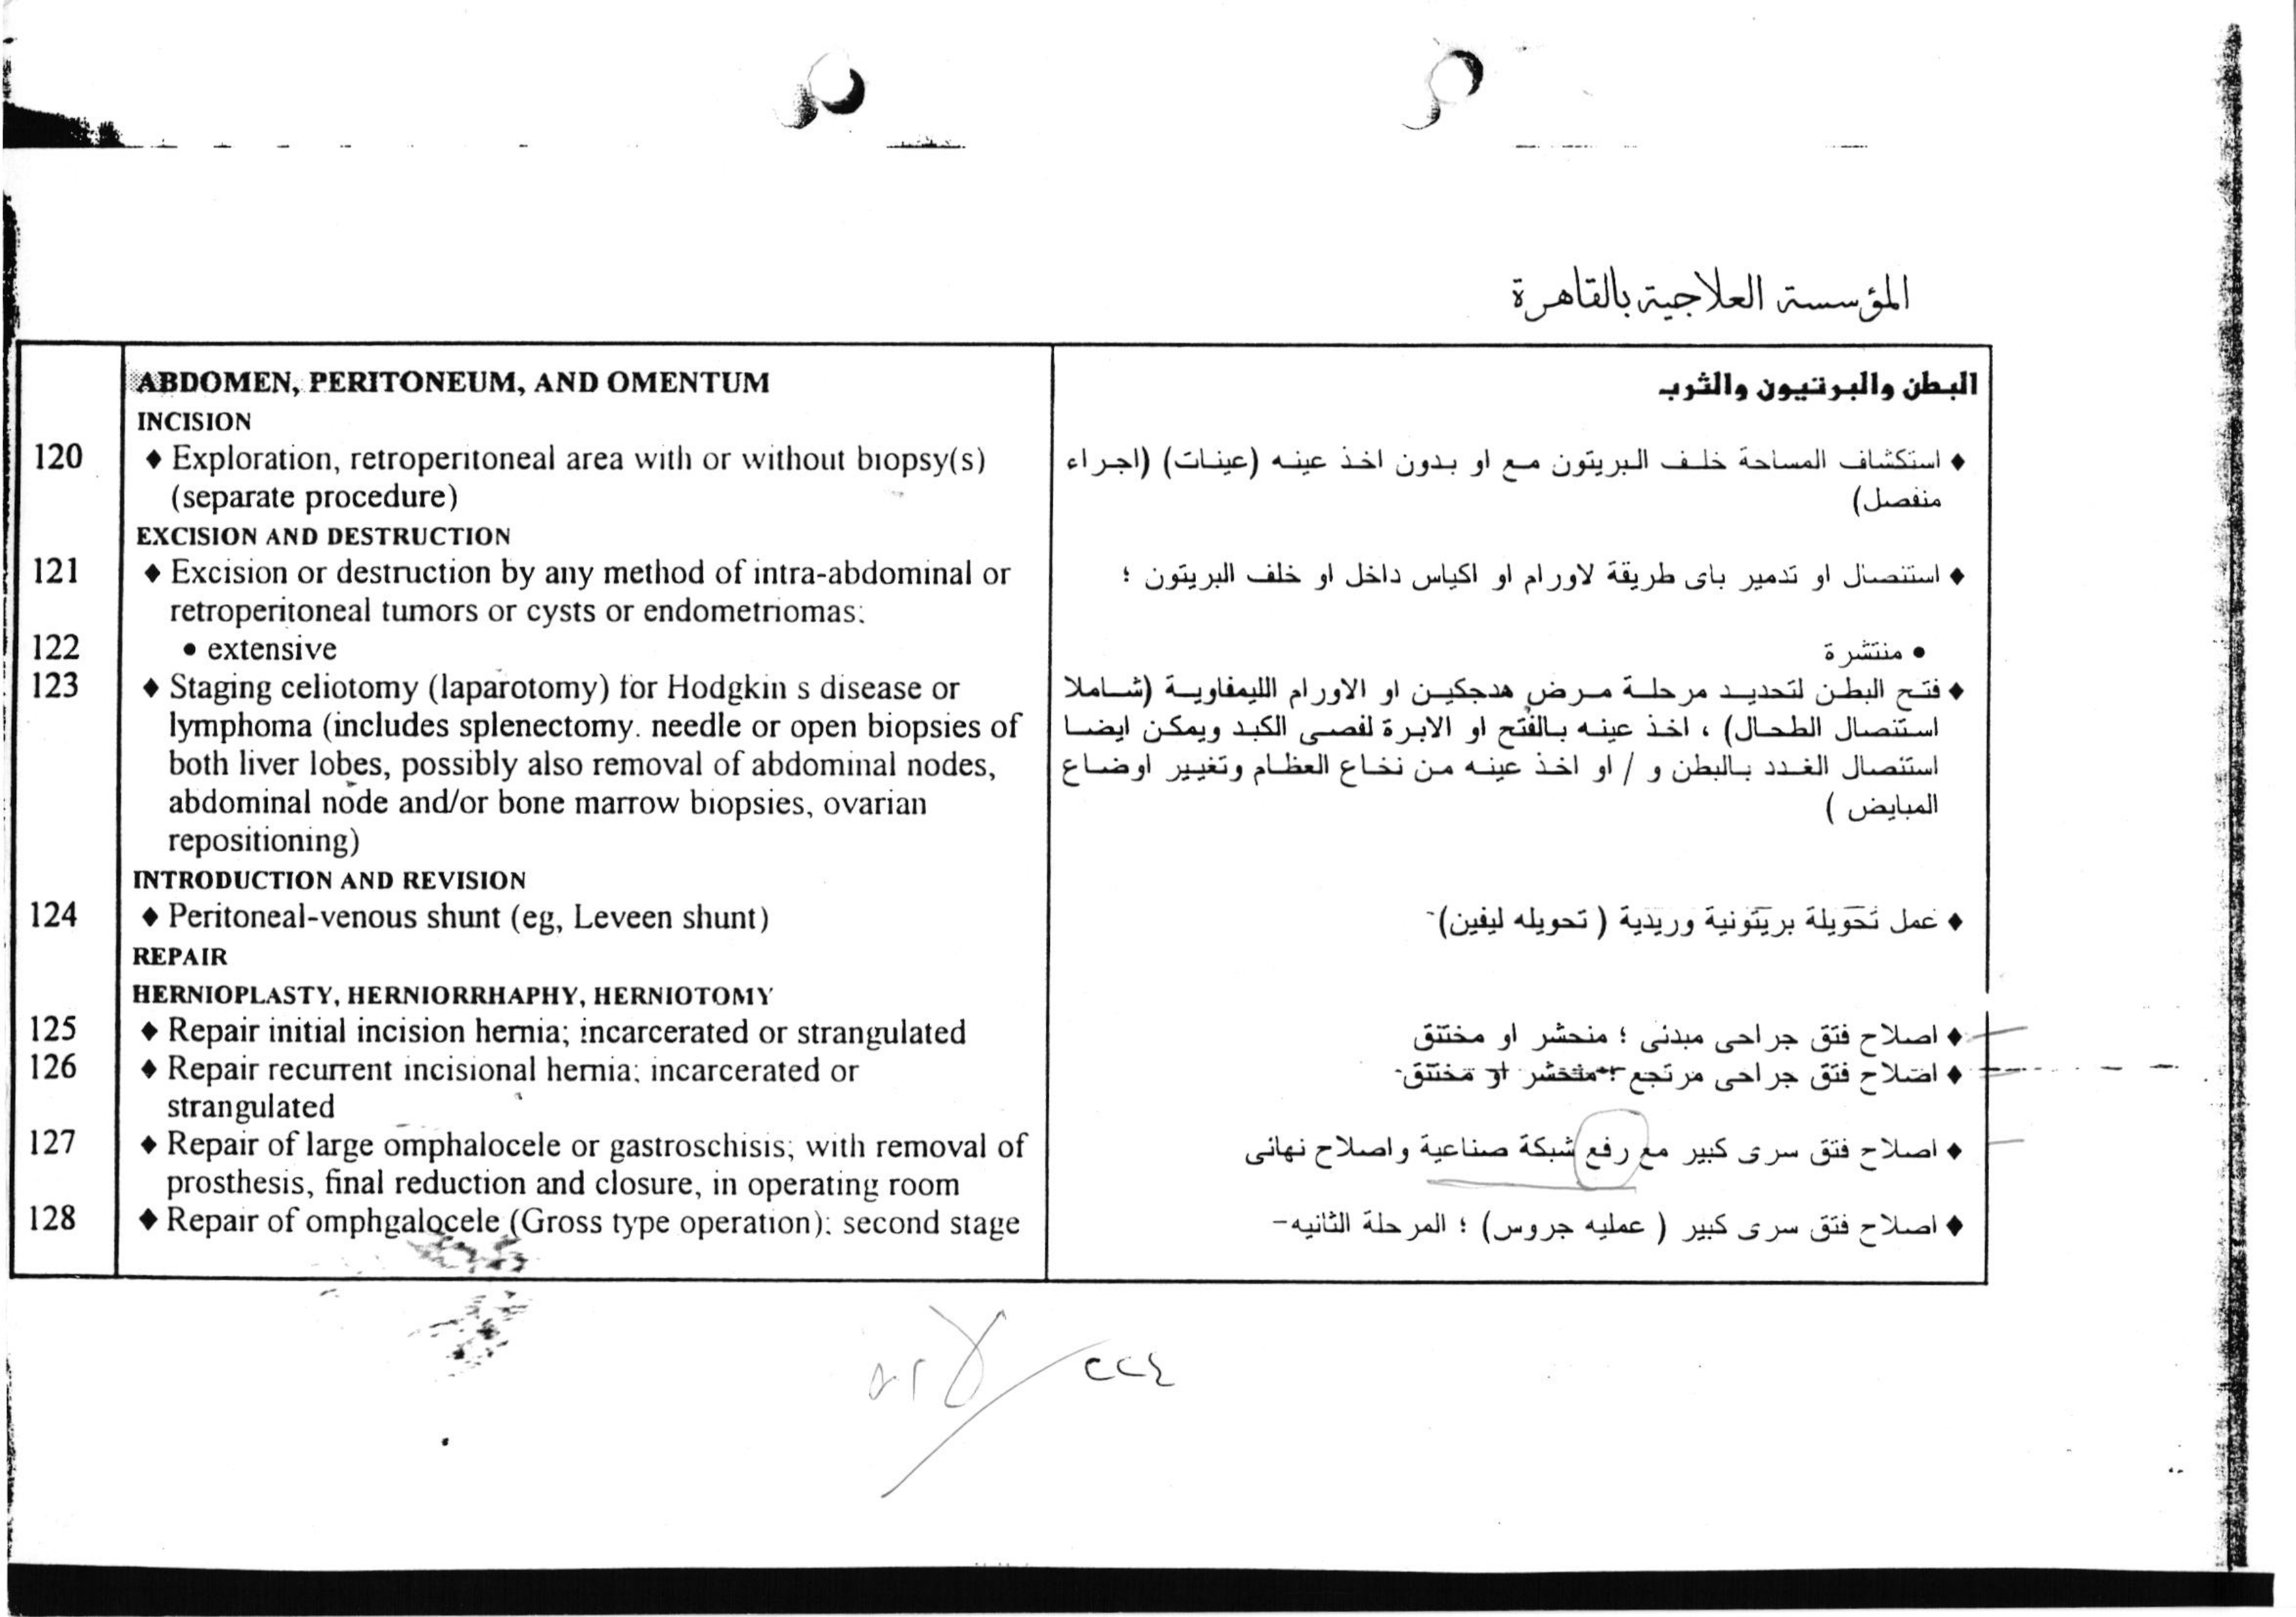 المؤسسة العلاجية بالقاهرة
ABDOMEN, PERITONEUM, AND OMENTUM
البطن والبرتيون والثرب
INCISION
120 ♦ Exploration, retroperitoneal area with or without biopsy(s)
(separate procedure)
♦ استكشاف المساحة خلف البريتون مع او بدون اخذ عينه (عينات) (اجراء
منفصل)
EXCISION AND DESTRUCTION
121 ♦ Excision or destruction by any method of intra-abdominal or
retroperitoneal tumors or cysts or endometriomas:
♦ استنصال او تدمير باى طريقة لاورام او اكياس داخل او خلف البريتون ؛
122 • extensive
• منتشرة
123 ♦ Staging celiotomy (laparotomy) for Hodgkin s disease or
lymphoma (includes splenectomy. needle or open biopsies of
both liver lobes, possibly also removal of abdominal nodes,
abdominal node and/or bone marrow biopsies, ovarian
repositioning)
♦ فتح البطن لتحديد مرحلة مرض هدجكين او الاورام الليمفاوية (شاملا
استنصال الطحال) ، اخذ عينه بالفتح او الابرة لفصى الكبد ويمكن ايضا
استنصال الغدد بالبطن و / او اخذ عينه من نخاع العظام وتغيير اوضاع
المبايض )
INTRODUCTION AND REVISION
124 ♦ Peritoneal-venous shunt (eg, Leveen shunt)
♦ عمل تحويلة بريتونية وريدية ( تحويله ليفين)-
REPAIR
HERNIOPLASTY, HERNIORRHAPHY, HERNIOTOMY
125 ♦ Repair initial incision hernia; incarcerated or strangulated
♦ اصلاح فتق جراحى مبدئى ؛ منحشر او مختنق
126 ♦ Repair recurrent incisional hernia; incarcerated or
strangulated
♦ اصلاح فتق جراحى مرتجع ؛ منحشر او مختنق-
127 ♦ Repair of large omphalocele or gastroschisis; with removal of
prosthesis, final reduction and closure, in operating room
♦ اصلاح فتق سرى كبير مع رفع شبكة صناعية واصلاح نهائى
128 ♦ Repair of omphgalocele (Gross type operation): second stage
♦ اصلاح فتق سرى كبير ( عمليه جروس) ؛ المرحلة الثانيه-